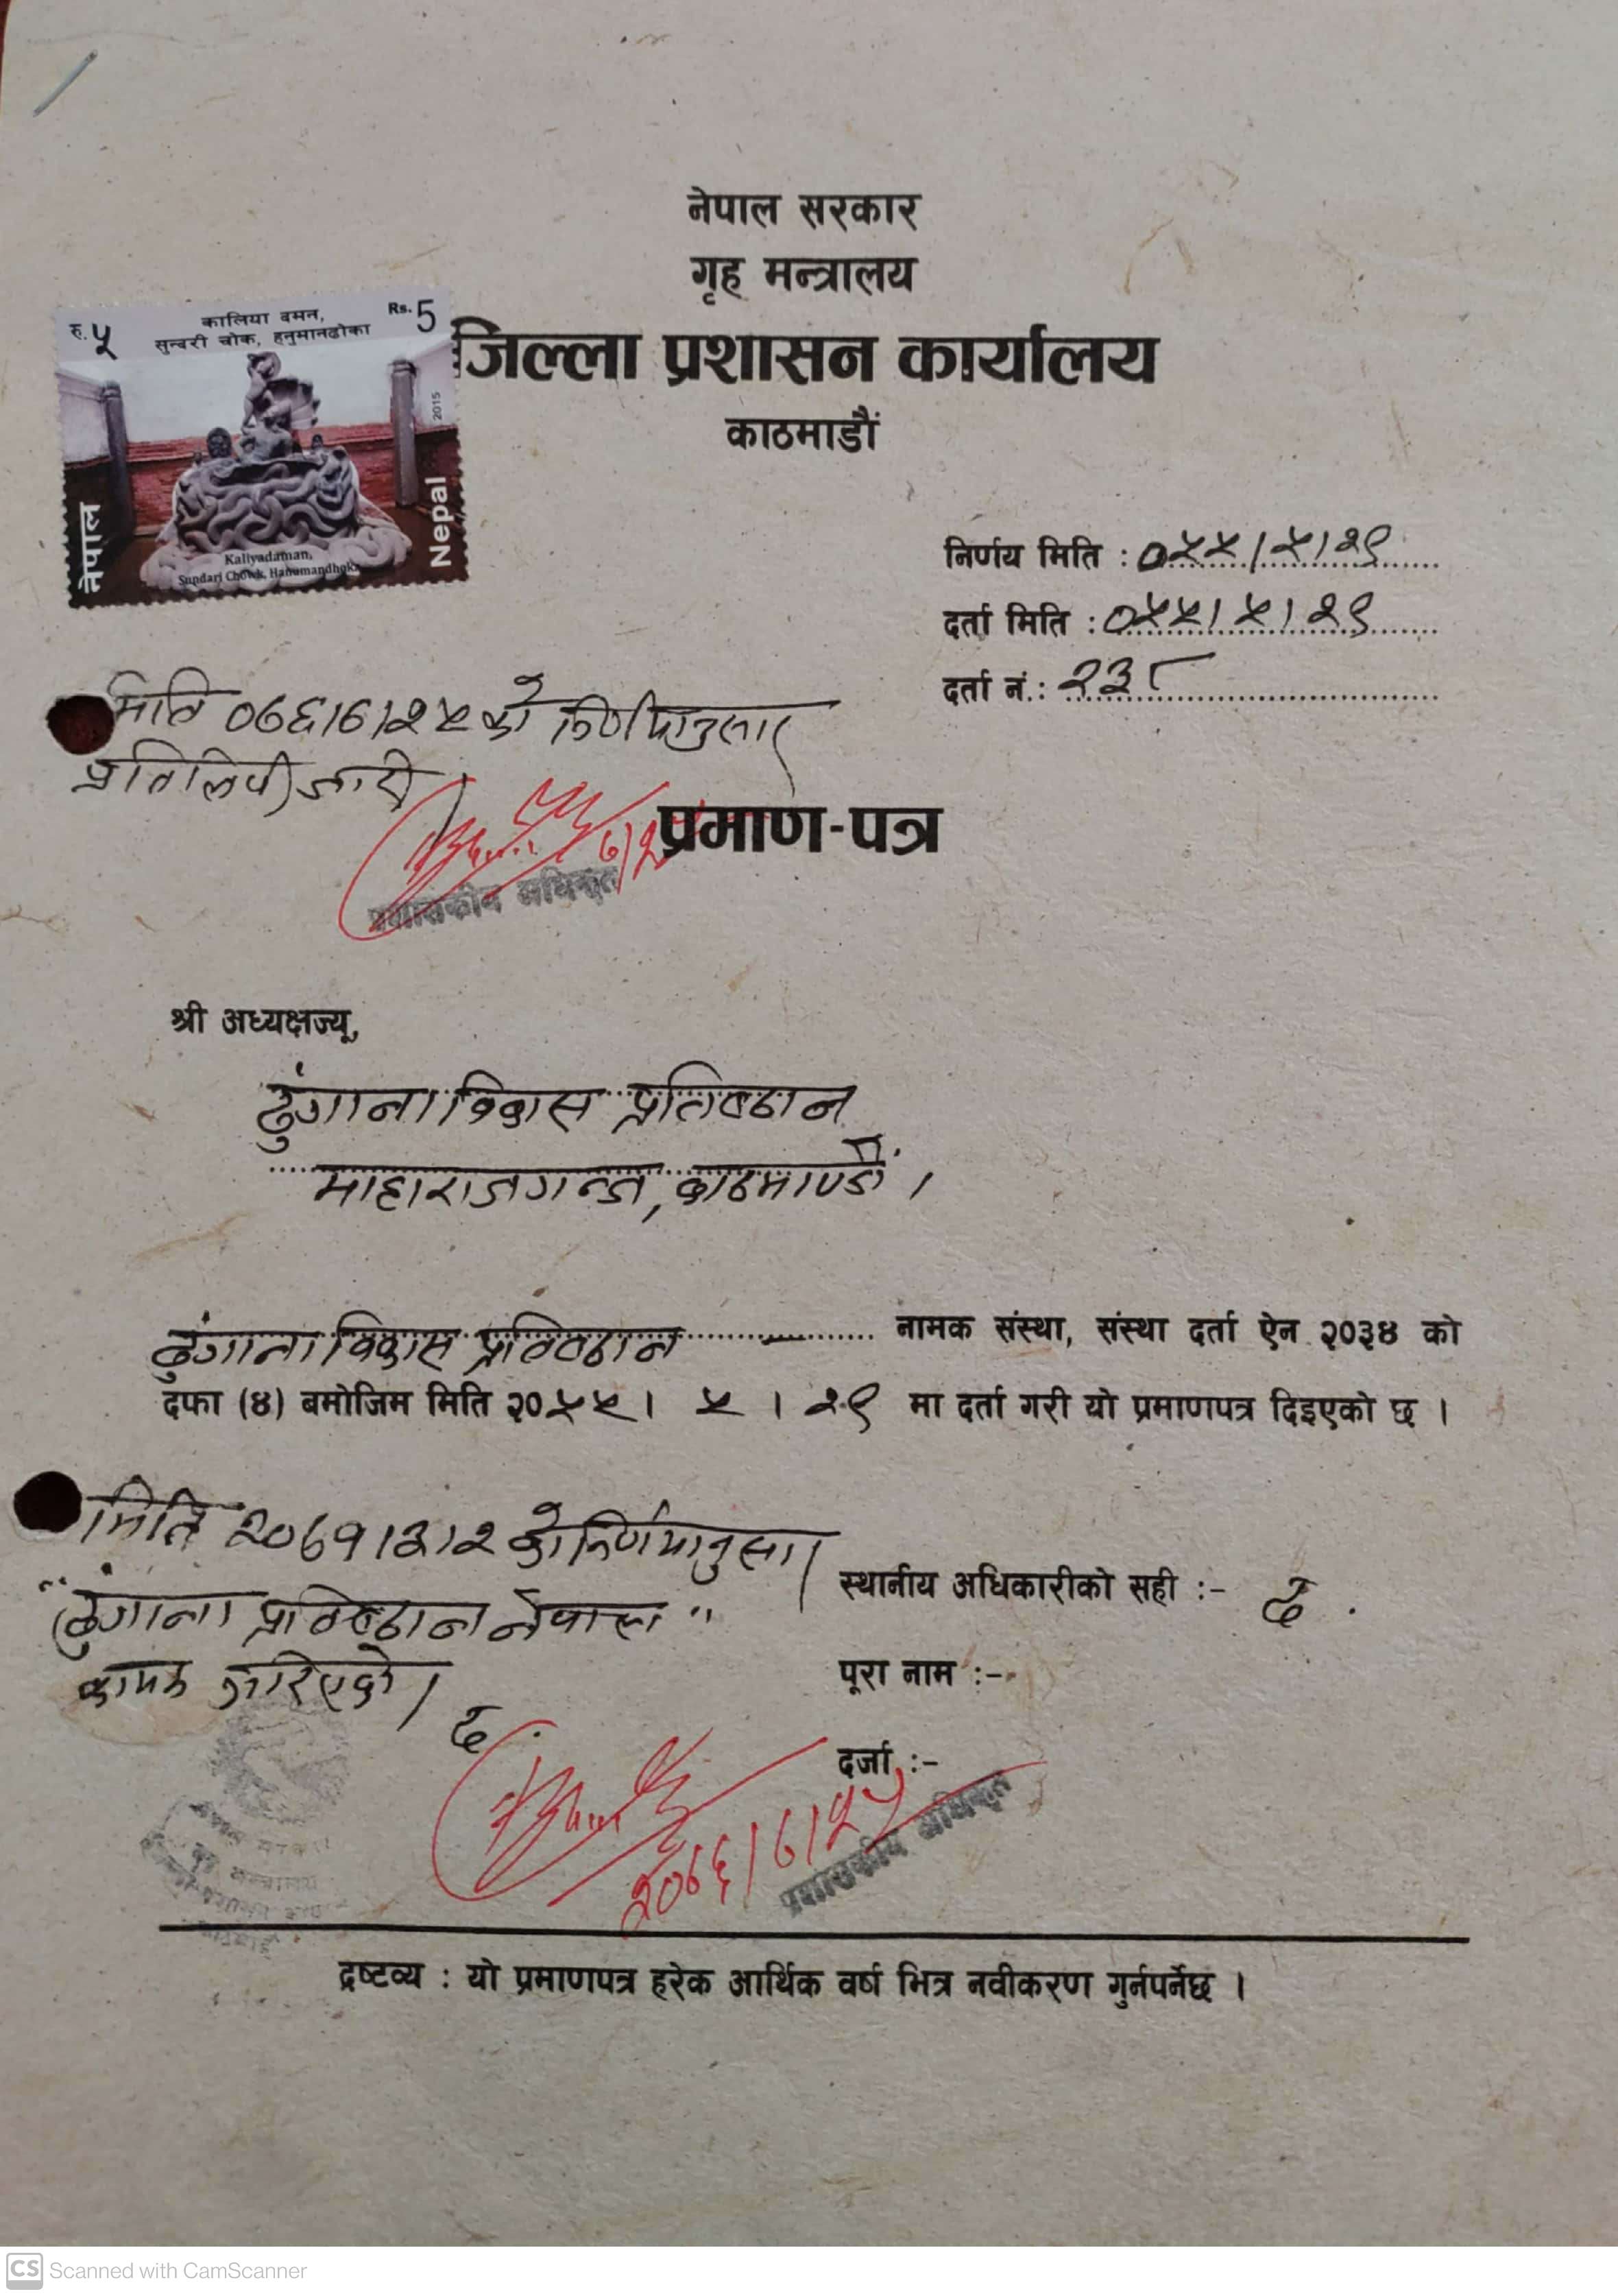 नेपाल सरकार
गृह मन्त्रालय
जिल्ला प्रशासन कार्यालय
काठमाडौं
रु. ५
कालिया दमन,
सुन्दरी चोक, हनुमानढोका
Rs. 5
2015
नेपाल
Nepal
Kaliyadaman,
Sundari Chowk, Hanumandhoka
निर्णय मिति : ०५५।५।२९
दर्ता मिति : ०५५।५।२९
दर्ता नं.: २३८
मिति ०७६।७।२५ को निर्णयानुसार
प्रतिलिपी जारी
प्रमाण-पत्र
प्रशासकीय अधिकृत
श्री अध्यक्षज्यू,
ढुंगाना विकास प्रतिष्ठान
माहाराजगन्ज, काठमाण्डौं ।
ढुंगाना विकास प्रतिष्ठान नामक संस्था, संस्था दर्ता ऐन २०३४ को
दफा (४) बमोजिम मिति २०५५। ५ । २९ मा दर्ता गरी यो प्रमाणपत्र दिइएको छ ।
मिति २०७१।३।२ को निर्णयानुसार
"ढुंगाना प्रतिष्ठान नेपाल"
कायम गरिएको ।
द.
स्थानीय अधिकारीको सही :- द.
पूरा नाम :-
दर्जा :-
२०७६।७।२५
प्रशासकीय अधिकृत
नेपाल सरकार
गृह मन्त्रालय
द्रष्टव्य : यो प्रमाणपत्र हरेक आर्थिक वर्ष भित्र नवीकरण गुर्नपर्नेछ ।
CS Scanned with CamScanner